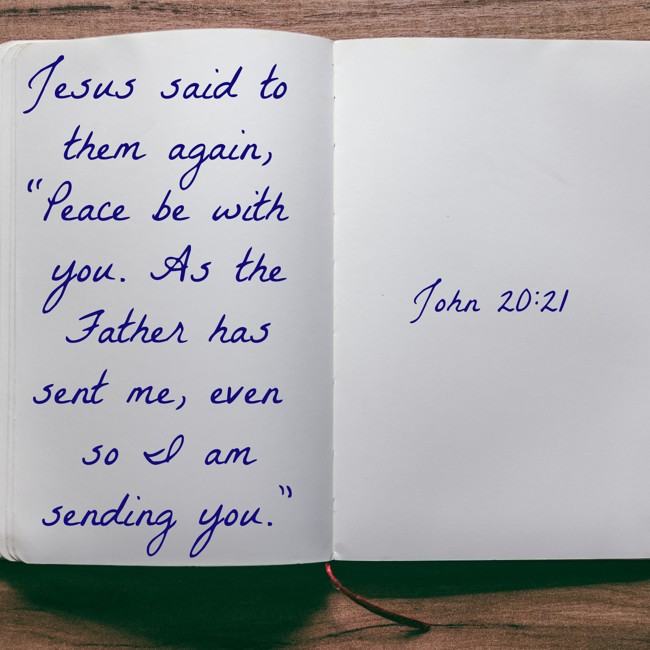 Jesus said to
them again,
“Peace be with
you. As the
Father has
sent me, even
so I am
sending you.”
John 20:21